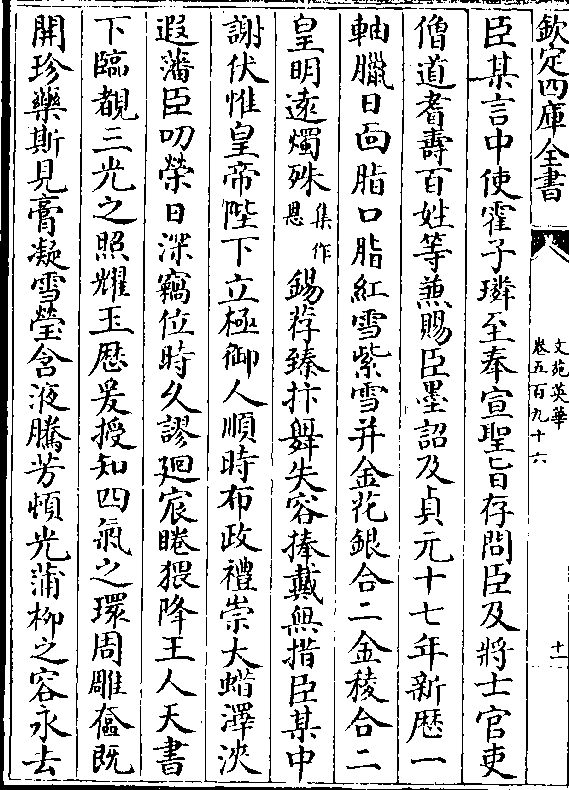 欽定四庫全書
文苑英華
卷五百九十六
十一
臣某言中使霍子璘至奉宣聖旨存問臣及將士官吏
僧道耆壽百姓等兼賜臣墨詔及貞元十七年新歴一
軸臘日面脂口脂紅雪紫雪并金花銀合二金稜合二
皇明遠燭殊集作恩錫荐臻抃舞失容捧戴無措臣某中
謝伏惟皇帝陛下立極御人順時布政禮崇大蜡澤浹
遐藩臣叨榮日深竊位時久謬廻宸睠猥降王人天書
下臨覩三光之照耀玉歴爰授知四氣之環周雕奩既
開珍藥斯見膏凝雪瑩含液騰芳頓光蒲柳之容永去